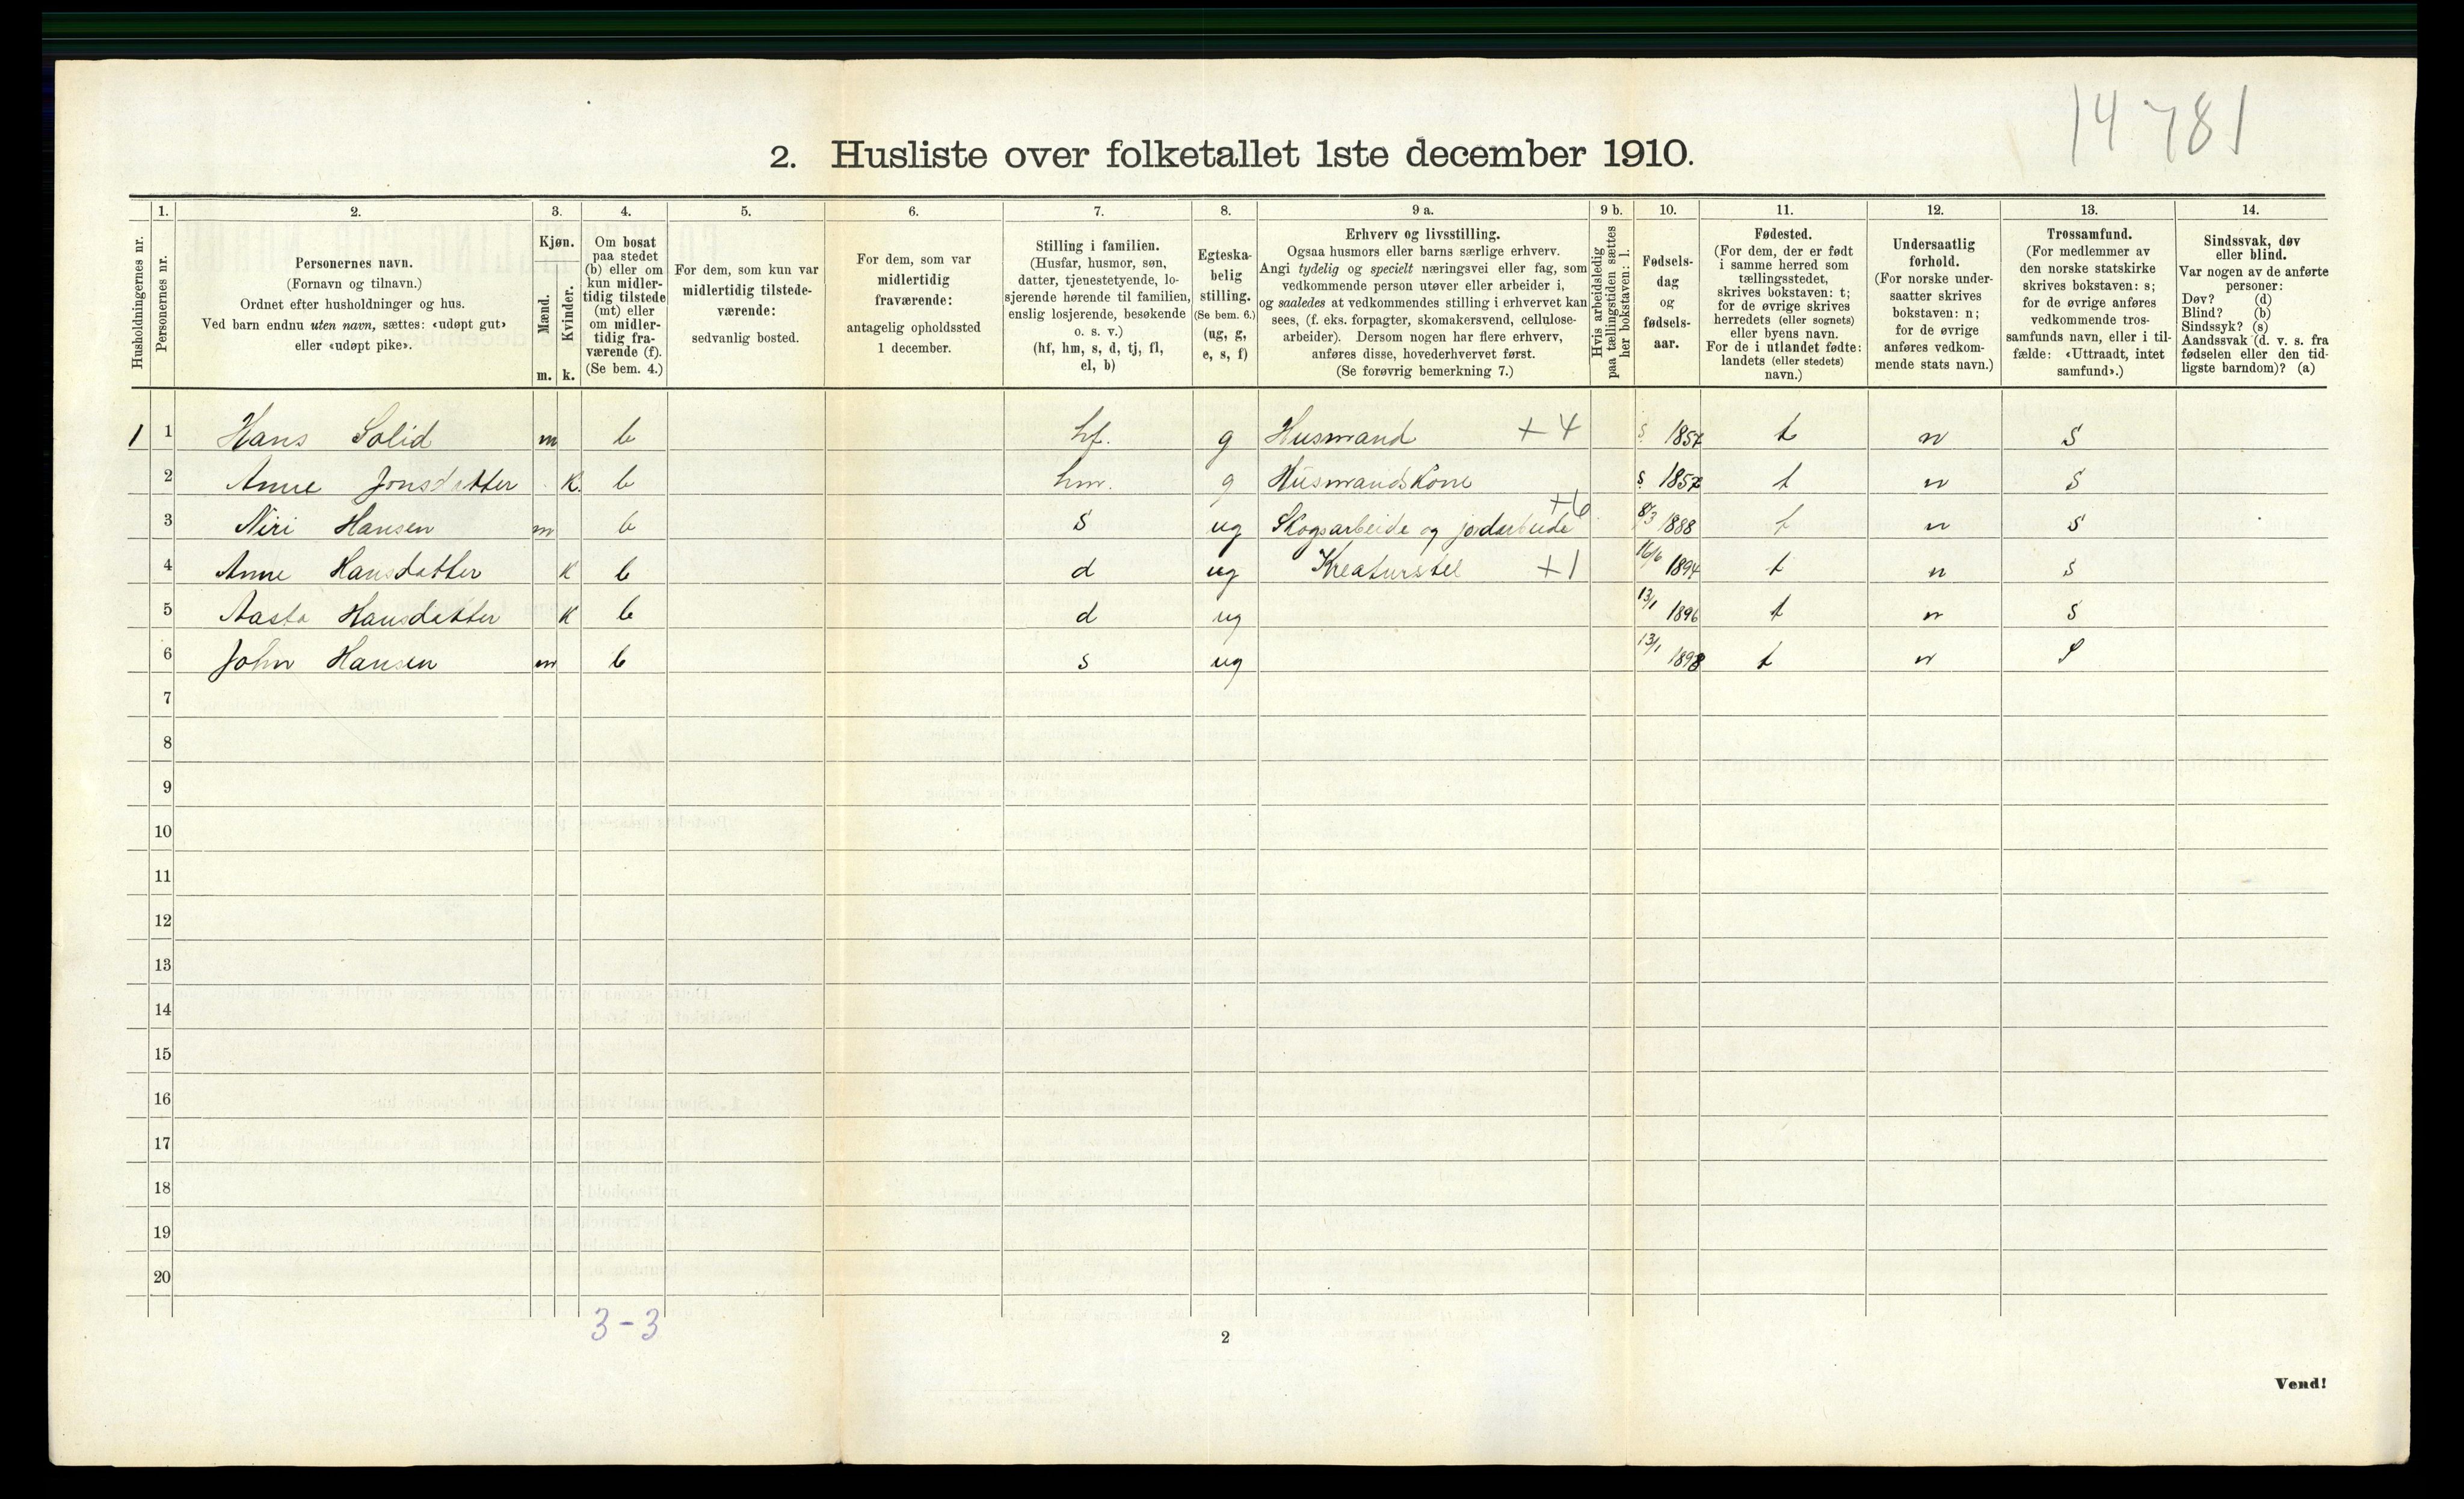 14 781
2. Husliste over folketallet 1ste december 1910.
Husholdningernes nr.
1.
Personernes nr.
2.
Personernes navn.
(Fornavn og tilnavn.)
Ordnet efter husholdninger og hus.
Ved barn endnu uten navn, sættes: «udøpt gut»
eller «udøpt pike».
3.
Kjøn.
Mænd.
Kvinder.
m. k.
4.
Om bosat
paa stedet
(b) eller om
kun midler-
tidig tilstede
(mt) eller
om midler-
tidig fra-
værende (f).
(Se bem. 4.)
5.
For dem, som kun var
midlertidig tilstede-
værende:
sedvanlig bosted.
6.
For dem, som var
midlertidig
fraværende:
antagelig opholdssted
1 december.
7.
Stilling i familien.
(Husfar, husmor, søn,
datter, tjenestetyende, lo-
sjerende hørende til familien,
enslig losjerende, besøkende
o. s. v.)
(hf, hm, s, d, tj, fl,
el, b)
8.
Egteska-
belig
stilling.
(Se bem. 6.)
(ug, g,
e, s, f)
9 a.
Erhverv og livsstilling.
Ogsaa husmors eller barns særlige erhverv.
Angi tydelig og specielt næringsvei eller fag, som
vedkommende person utøver eller arbeider i,
og saaledes at vedkommendes stilling i erhvervet kan
sees, (f. eks. forpagter, skomakersvend, cellulose-
arbeider). Dersom nogen har flere erhverv,
anføres disse, hovederhvervet først.
(Se forøvrig bemerkning 7.)
9 b.
Hvis arbeidsledig
paa tællingstiden sættes
her bokstaven: l.
10.
Fødsels-
dag
og
fødsels-
aar.
11.
Fødested.
(For dem, der er født
i samme herred som
tællingsstedet,
skrives bokstaven: t;
for de øvrige skrives
herredets (eller sognets)
eller byens navn.
For de i utlandet fødte:
landets (eller stedets)
navn.)
12.
Undersaatlig
forhold.
(For norske under-
saatter skrives
bokstaven: n;
for de øvrige
anføres vedkom-
mende stats navn.)
13.
Trossamfund.
(For medlemmer av
den norske statskirke
skrives bokstaven: s;
for de øvrige anføres
vedkommende tros-
samfunds navn, eller i til-
fælde: «Uttraadt, intet
samfund».)
14.
Sindssvak, døv
eller blind.
Var nogen av de anførte
personer:
Døv? (d)
Blind? (b)
Sindssyk? (s)
Aandssvak (d. v. s. fra
fødselen eller den tid-
ligste barndom)? (a)
1 1 Hans Solid m b hf. g Husmand +4 t n S
2 Anne Jonsdatter K. b hm. g Husmandskone t n S
3 Niri Hansen m b S ug Skogsarbeide og jordarbeide +6 8/3 1888 t n S
4 Anne Hansdatter K b d ug Kreaturstel +1 16/6 1894 t n S
5 Aasta Hansdatter K b d ug 13/1 1896 t n S
6 John Hansen m b s ug 13/1 1898 t n S
7
8
9
10
11
12
13
14
15
16
17
18
19
20
3-3
2
Vend!